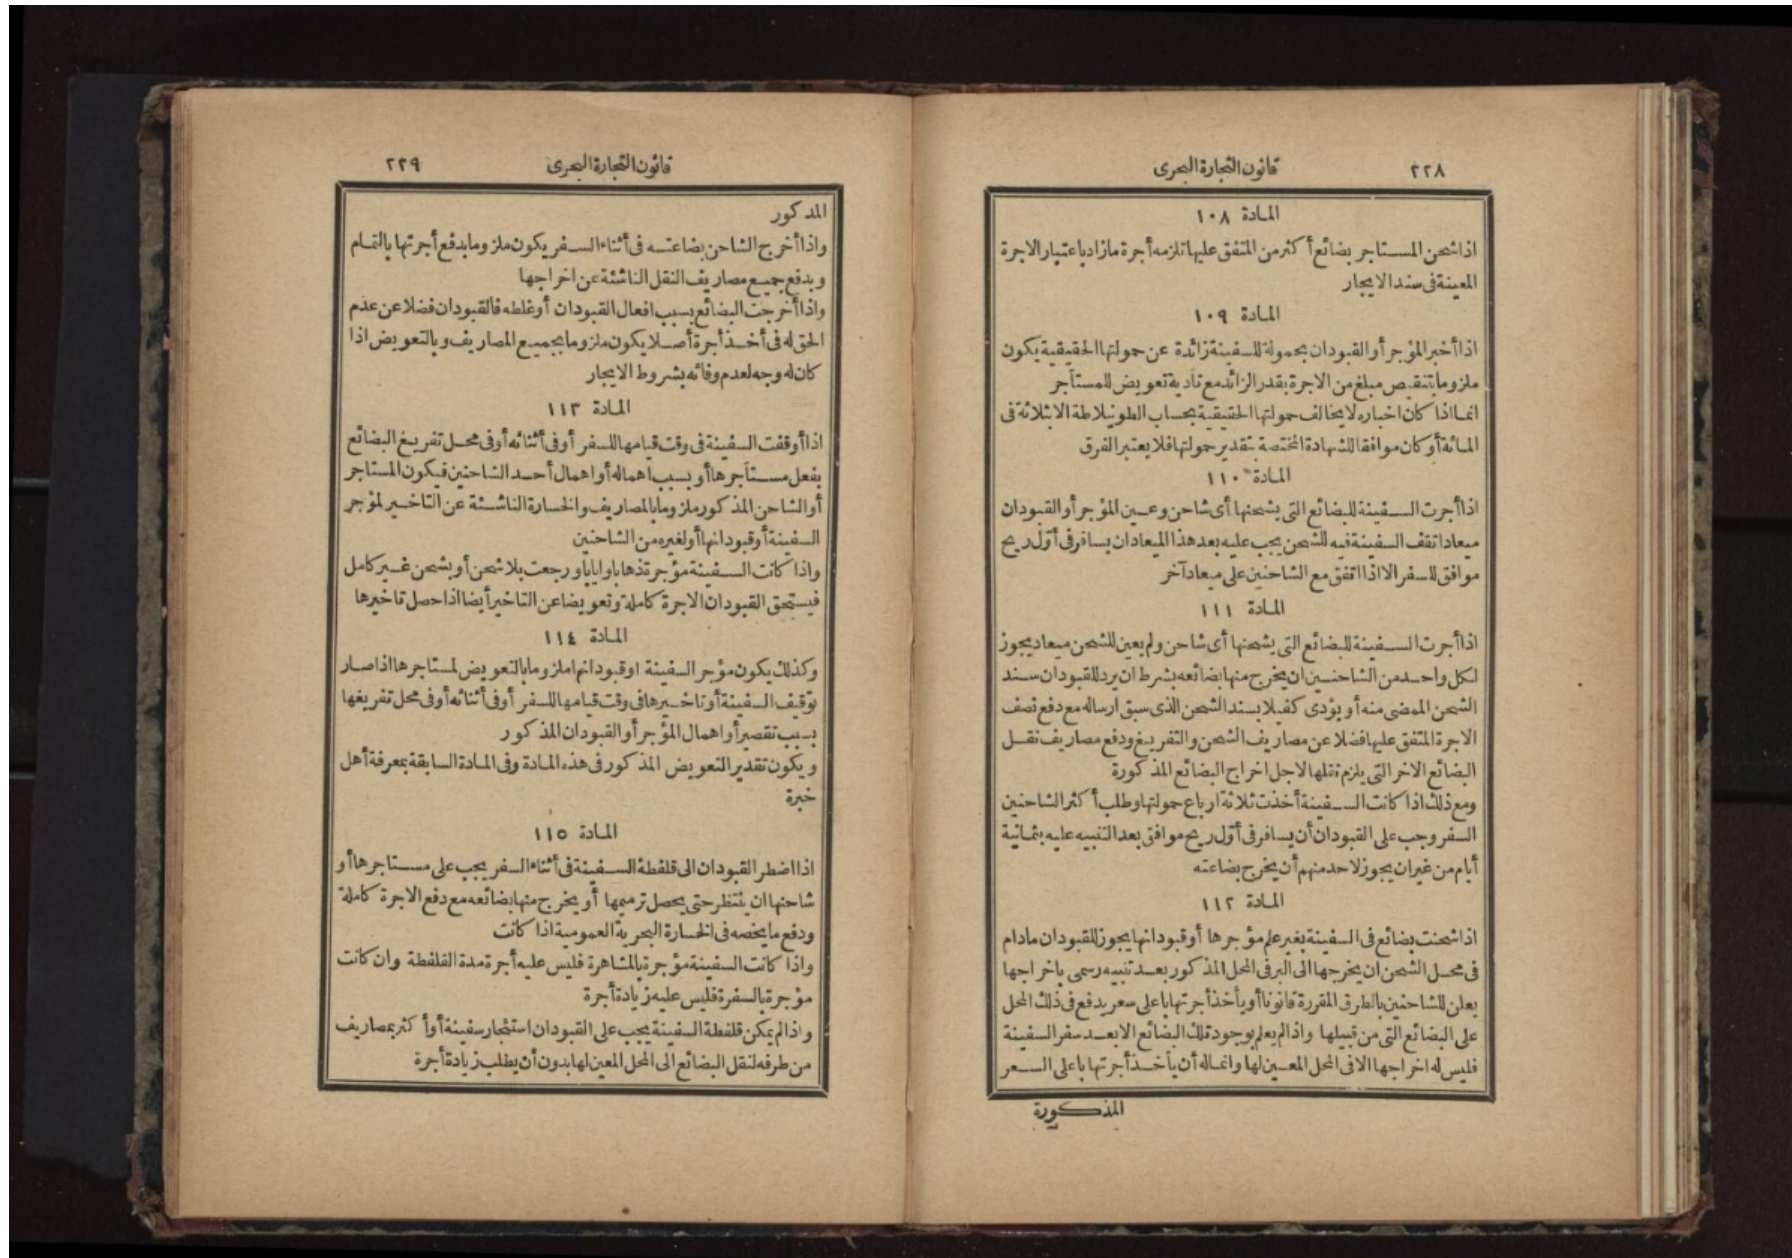 ٢٢٨ قانون التجارة البحرى
المادة ١٠٨
اذا شحن المستاجر بضائع أكثر من المتفق عليها تلزمه أجرة مازاد باعتبار الاجرة
المعينة فى سند الايجار
المادة ١٠٩
اذا أخبر المؤجر أو القبودان بحمولة للسفينة زائدة عن حمولتها الحقيقية يكون
ملزوما بتنقيص مبلغ من الاجرة بقدر الزائد مع تأدية تعويض للمستأجر
انما اذا كان اخباره لا يخالف حمولتها الحقيقية بحساب الطونيلاطة الا بثلاثة فى
المائة أو كان موافقا للشهادة المختصة بتقدير حمولتها فلا يعتبر الفرق
المادة ١١٠
اذا أجرت السفينة للبضائع التى يشحنها أى شاحن وعين المؤجر أو القبودان
ميعادا تقف السفينة فيه للشحن يجب عليه بعد هذا الميعاد ان يسافر فى أوّل ريح
موافق للسفر الا اذا اتفق مع الشاحنين على ميعاد آخر
المادة ١١١
اذا أجرت السفينة للبضائع التى يشحنها أى شاحن ولم يعين للشحن ميعاد يجوز
لكل واحد من الشاحنين ان يخرج منها بضائعه بشرط ان يرد للقبودان سند
الشحن الممضى منه أو يؤدى كفيلا بسند الشحن الذى سبق ارساله مع دفع نصف
الاجرة المتفق عليها فضلا عن مصاريف الشحن والتفريغ ودفع مصاريف نقل
البضائع الاخر التى يلزم نقلها لاجل اخراج البضائع المذكورة
ومع ذلك اذا كانت السفينة أخذت ثلاثة ارباع حمولتها وطلب أكثر الشاحنين
السفر وجب على القبودان أن يسافر فى أوّل ريح موافق بعد التنبيه عليه بثمانية
أيام من غير ان يجوز لاحد منهم أن يخرج بضاعته
المادة ١١٢
اذا شحنت بضائع فى السفينة بغير علم مؤجرها أو قبودانها يجوز للقبودان مادام
فى محل الشحن ان يخرجها الى البر فى المحل المذكور بعد تنبيه رسمى باخراجها
يعلن للشاحنين بالطرق المقررة قانونا أو يأخذ أجرتها باعلى سعر يدفع فى ذلك المحل
على البضائع التى من قبيلها واذا لم يعلم بوجود تلك البضائع الا بعد سفر السفينة
فليس له اخراجها الا فى المحل المعين لها وانما له أن يأخذ أجرتها باعلى السعر
المذكورة
قانون التجارة البحرى ٢٢٩
المذكور
واذا أخرج الشاحن بضاعته فى أثناء السفر يكون ملزوما بدفع أجرتها بالتمام
وبدفع جميع مصاريف النقل الناشئة عن اخراجها
واذا أخرجت البضائع بسبب افعال القبودان أو غلطه فالقبودان فضلا عن عدم
الحق له فى أخذ أجرة أصلا يكون ملزوما بجميع المصاريف وبالتعويض اذا
كان له وجه لعدم وفائه بشروط الايجار
المادة ١١٣
اذا أوقفت السفينة فى وقت قيامها للسفر أو فى أثنائه أو فى محل تفريغ البضائع
بفعل مستأجرها أو بسبب اهماله أو اهمال أحد الشاحنين فيكون المستاجر
أو الشاحن المذكور ملزوما بالمصاريف والخسارة الناشئة عن التاخير لمؤجر
السفينة أو قبودانها أو لغيره من الشاحنين
واذا كانت السفينة مؤجرة ذهابا وايابا ورجعت بلا شحن أو بشحن غير كامل
فيستحق القبودان الاجرة كاملة وتعويضا عن التاخير أيضا اذا حصل تاخيرها
المادة ١١٤
وكذلك يكون مؤجر السفينة او قبودانها ملزوما بالتعويض لمستاجرها اذا صار
توقيف السفينة أو تاخيرها فى وقت قيامها للسفر أو فى أثنائه أو فى محل تفريغها
بسبب تقصير أو اهمال المؤجر أو القبودان المذكور
ويكون تقدير التعويض المذكور فى هذه المادة وفى المادة السابقة بمعرفة أهل
خبرة
المادة ١١٥
اذا اضطر القبودان الى قلفطة السفينة فى أثناء السفر يجب على مستاجرها أو
شاحنها ان ينتظر حتى يحصل ترميمها أو يخرج منها بضائعه مع دفع الاجرة كاملة
ودفع ما يخصه فى الخسارة البحرية العمومية اذا كانت
واذا كانت السفينة مؤجرة بالمشاهرة فليس عليه أجرة مدة القلفطة وان كانت
مؤجرة بالسفرة فليس عليه زيادة أجرة
واذا لم يمكن قلفطة السفينة يجب على القبودان استئجار سفينة أو أكثر بمصاريف
من طرفه لنقل البضائع الى المحل المعين لها بدون أن يطلب زيادة أجرة